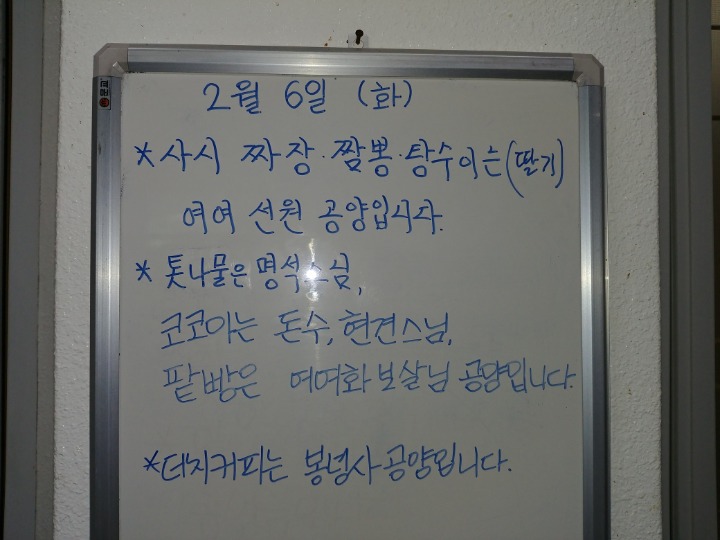 2월 6일 (화)
*사시 짜장·짬뽕·탕수이는(딸기)
여여 선원 공양입니다.
* 톳나물은 명석스님,
코코아는 돈수, 현견스님,
팥빵은 여여화보살님 공양입니다.
*더치커피는 봉녕사공양입니다.